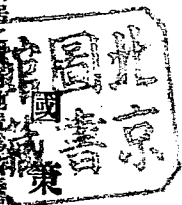 北京
圖書
館藏
國